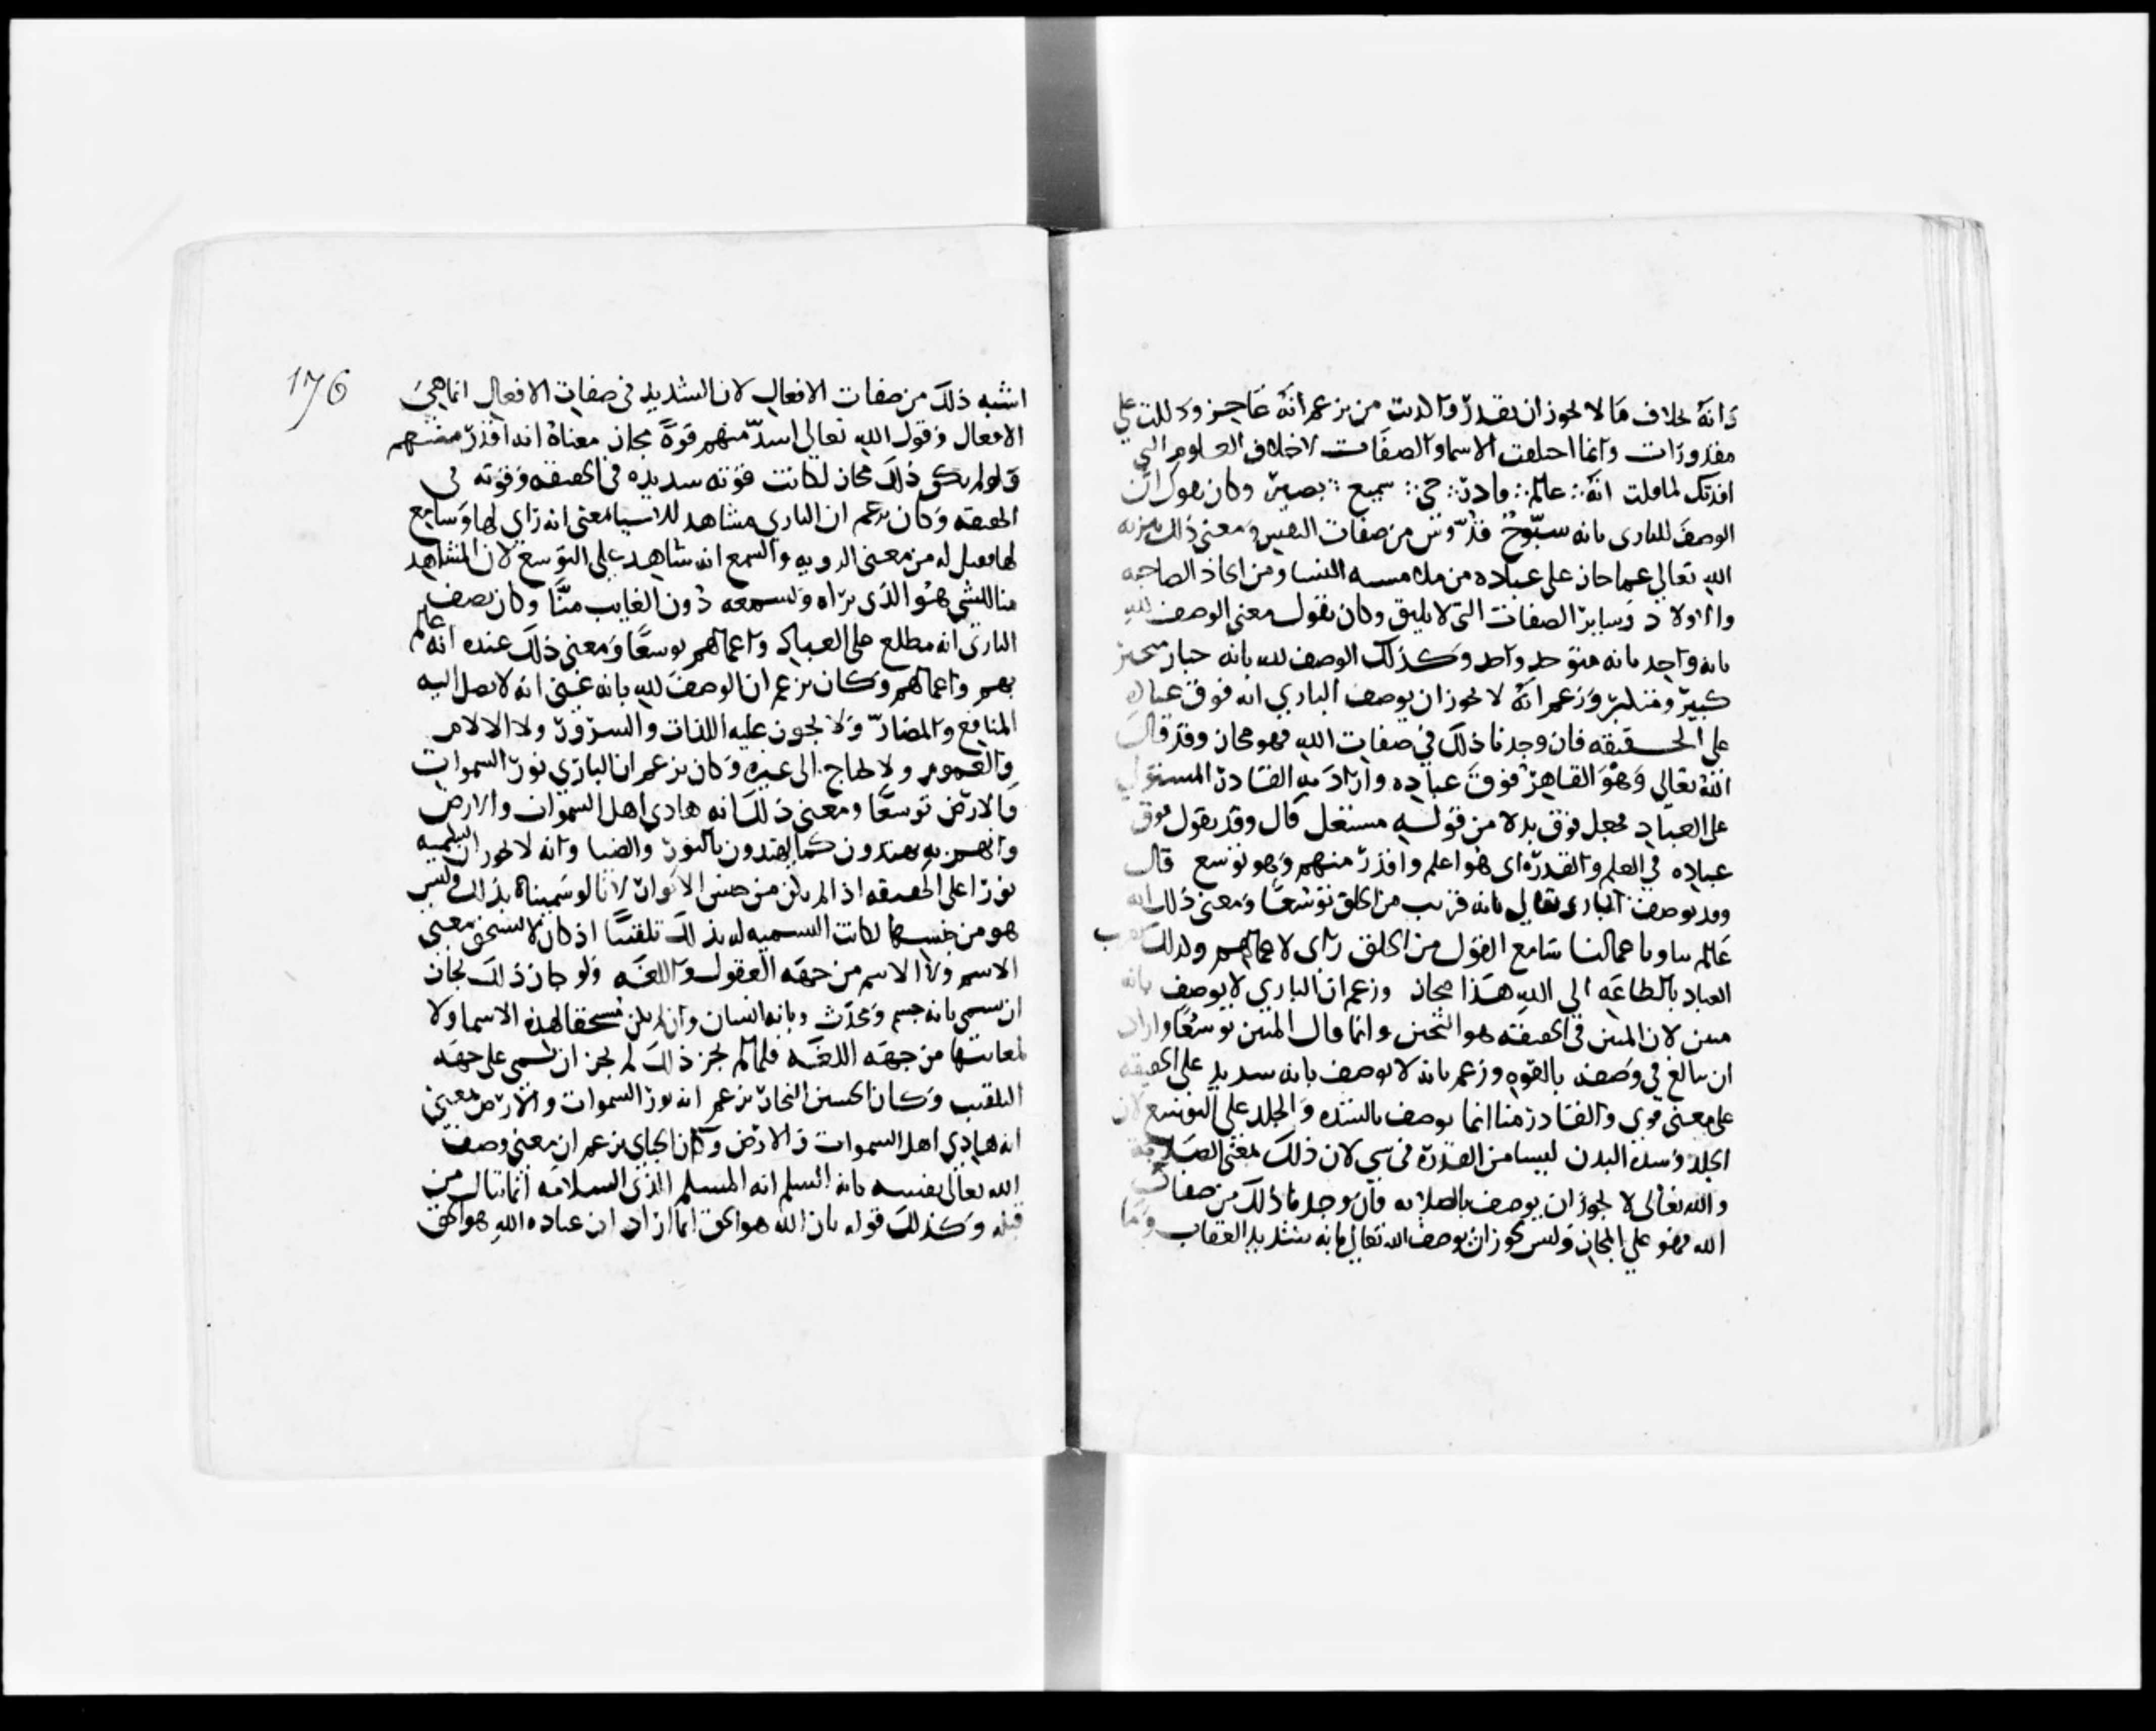 وانه بخلاف ما لا يجوز ان يقدر واكذبت من يزعم انه عاجز ودللت على
مقدورات وانما اختلفت الاسما والصفات لاختلاف العلوم التي
افدتك لما قلت انه عالم قادر حي سميع بصير وكان يقول ان
الوصف للبارى بانه سبّوح قدّوس من صفات النفس ومعنى ذلك تنزيه
الله تعالى عما جاز على عباده من ملامسه النسا ومن اتخاذ الصاحبه
والاولاد وساير الصفات التى لا يليق وكان يقول معنى الوصف لله
بانه واحد بانه متوحد واحد وكذلك الوصف لله بانه جبار متجبر
كبير ومتكبر وزعم انه لا يجوز ان يوصف الباري انه فوق عباده
على الحقيقه فان وجدنا ذلك في صفات الله فهو مجاز وقد قال
الله تعالى وهو القاهر فوق عباده واراد به القادر المستولى
على العباد فجعل فوق بدلا من قوله مستعل قال وقد يقول فوق
عباده في العلم والقدره اى هو اعلم واقدر منهم وهو توسع قال
وقد يوصف البارى تعالى بانه قريب من الخلق توسّعا ومعنى ذلك انه
عالم بنا وباعمالنا سامع القول من الخلق راى لاعمالهم وكذلك تقرب
العباد بالطاعه الى الله هذا مجاز وزعم ان الباري لا يوصف بانه
متين لان المتين في الحقيقه هو الثخين وانما قال المتين توسّعا واراد
ان يبالغ في وصفه بالقوه وزعم بانه لا يوصف بانه سديد على الحقيقه
على معنى قوى والقادر منا انما يوصف بالشده والجلد على التوسع لان
الجلد وشده البدن ليسا من القدره في سي لان ذلك لمعنى الصلابه
والله تعالى لا يجوز ان يوصف بالصلابه فان وجدنا ذلك من صفات
الله فهو على المجاز وليس يجوز ان يوصف الله تعالى بانه شديد العقاب وما
176
اشبه ذلك من صفات الافعال لان الشديد في صفات الافعال انما هي
الافعال وقول الله تعالى اشدّ منهم قوةً مجاز معناه انه اقدر منهم
ولو لم يكن ذلك مجاز لكانت قوته سديده في الحقيقه وقوته في
الحقيقه وكان يزعم ان الباري مشاهد للاسيا بمعنى انه راي لها وسامع
لها فقيل له من معنى الرويه والسمع انه شاهد على التوسع لان المشاهد
منا للشي هو الذي يراه ويسمعه دون الغايب منّا وكان يصف
البارى انه مطلع على العباد واعمالهم توسعًا ومعنى ذلك عنده انه عالم
بهم واعمالهم وكان يزعم ان الوصف لله بانه غنى انه لا يصل اليه
المنافع والمضارّ ولا يجوز عليه اللذات والسرور ولا الالام
والغموم ولا يحتاج الى غيره وكان يزعم ان الباري نور السموات
والارض توسعًا ومعنى ذلك انه هادي اهل السموات والارض
وانهم به يهتدون كما يهتدون بالنور والضيا وانه لا يجوز ان نسميه
نورا على الحقيقه اذ لم يكن من جنس الانوار لانا لو سميناه بذلك وليس
هو من جنسها لكانت التسميه له بذلك تلقيبًا اذ كان لا يستحق معنى
الاسم ولا الاسم من جهه العقول واللغه ولو جاز ذلك لجاز
ان يسمى بانه جسم ومحدث وبانه انسان وان لم يكن مستحقا لهذه الاسما ولا
لمعانيها من جهه اللغه فلما لم يجز ذلك لم يجز ان يسمى على جهه
التلقيب وكان الحسين النجار يزعم انه نور السموات والارض بمعنى
انه هادي اهل السموات والارض وكان الجباي يزعم ان معنى وصف
الله تعالى نفسه بانه السلم انه المسلم الذي السلامه انما تنال من
قبله وكذلك قوله بان الله هو الحق انما اراد ان عباده الله هو الحق